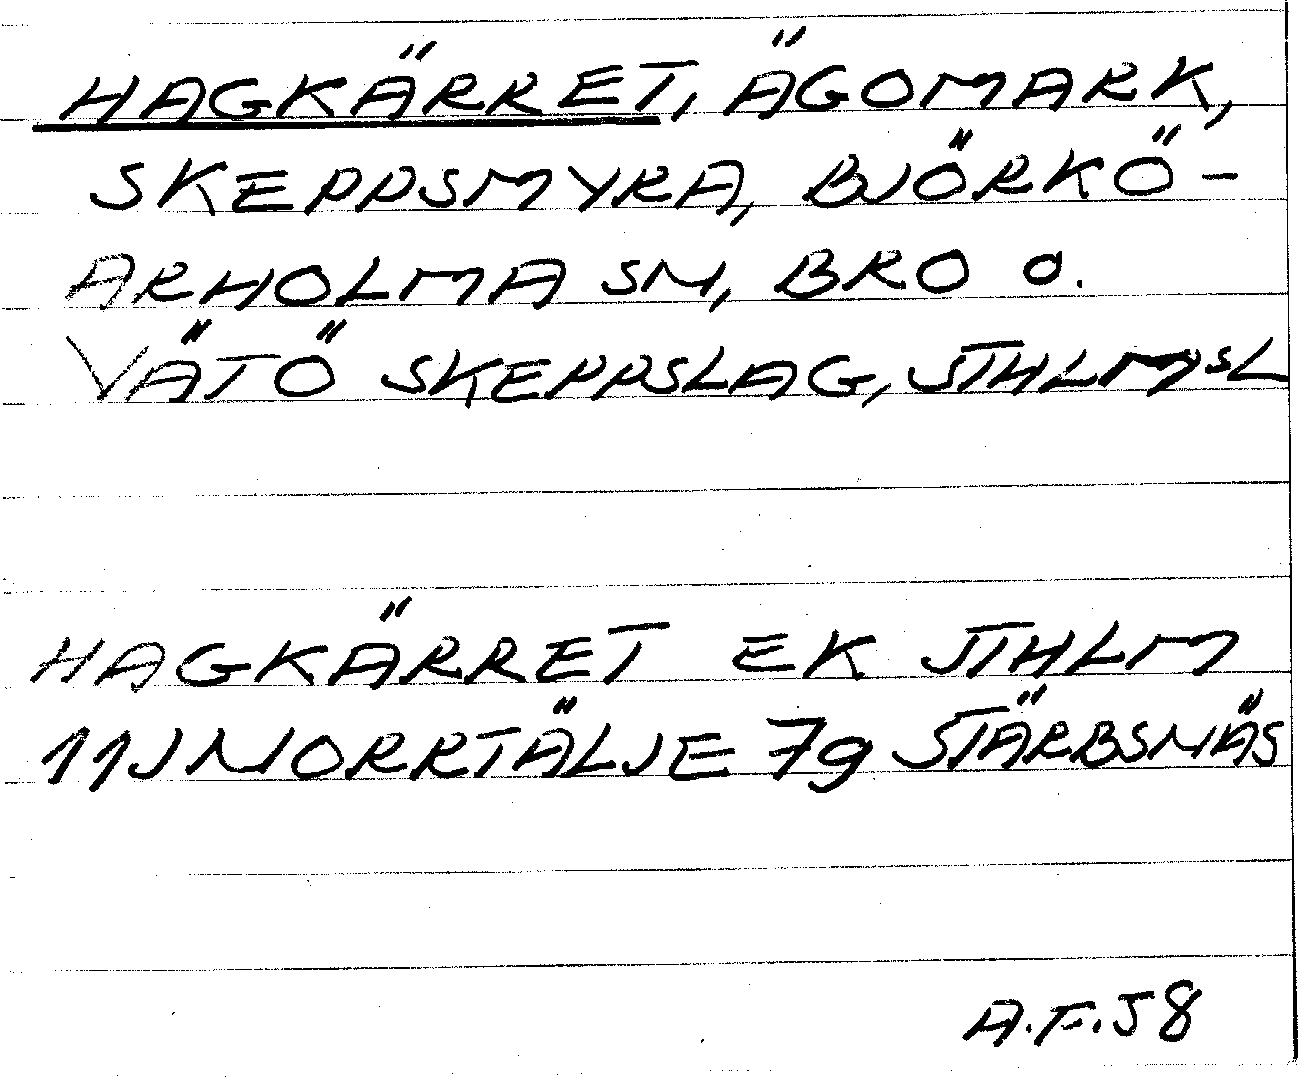 HAGKÄRRET, ÄGOMARK,
SKEPPSMYRA, BJÖRKÖ-
ARHOLMA SN, BRO O.
VÄTÖ SKEPPSLAG, STHLMSL
HAGKÄRRET EK STHLM
11J NORRTÄLJE 7g STÄRBSNÄS
A.F.58